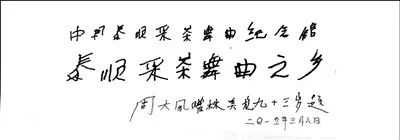 中国泰顺采茶舞曲纪念馆
泰顺采茶舞曲之乡
周大风 九十三岁题
二〇一五年三月八日